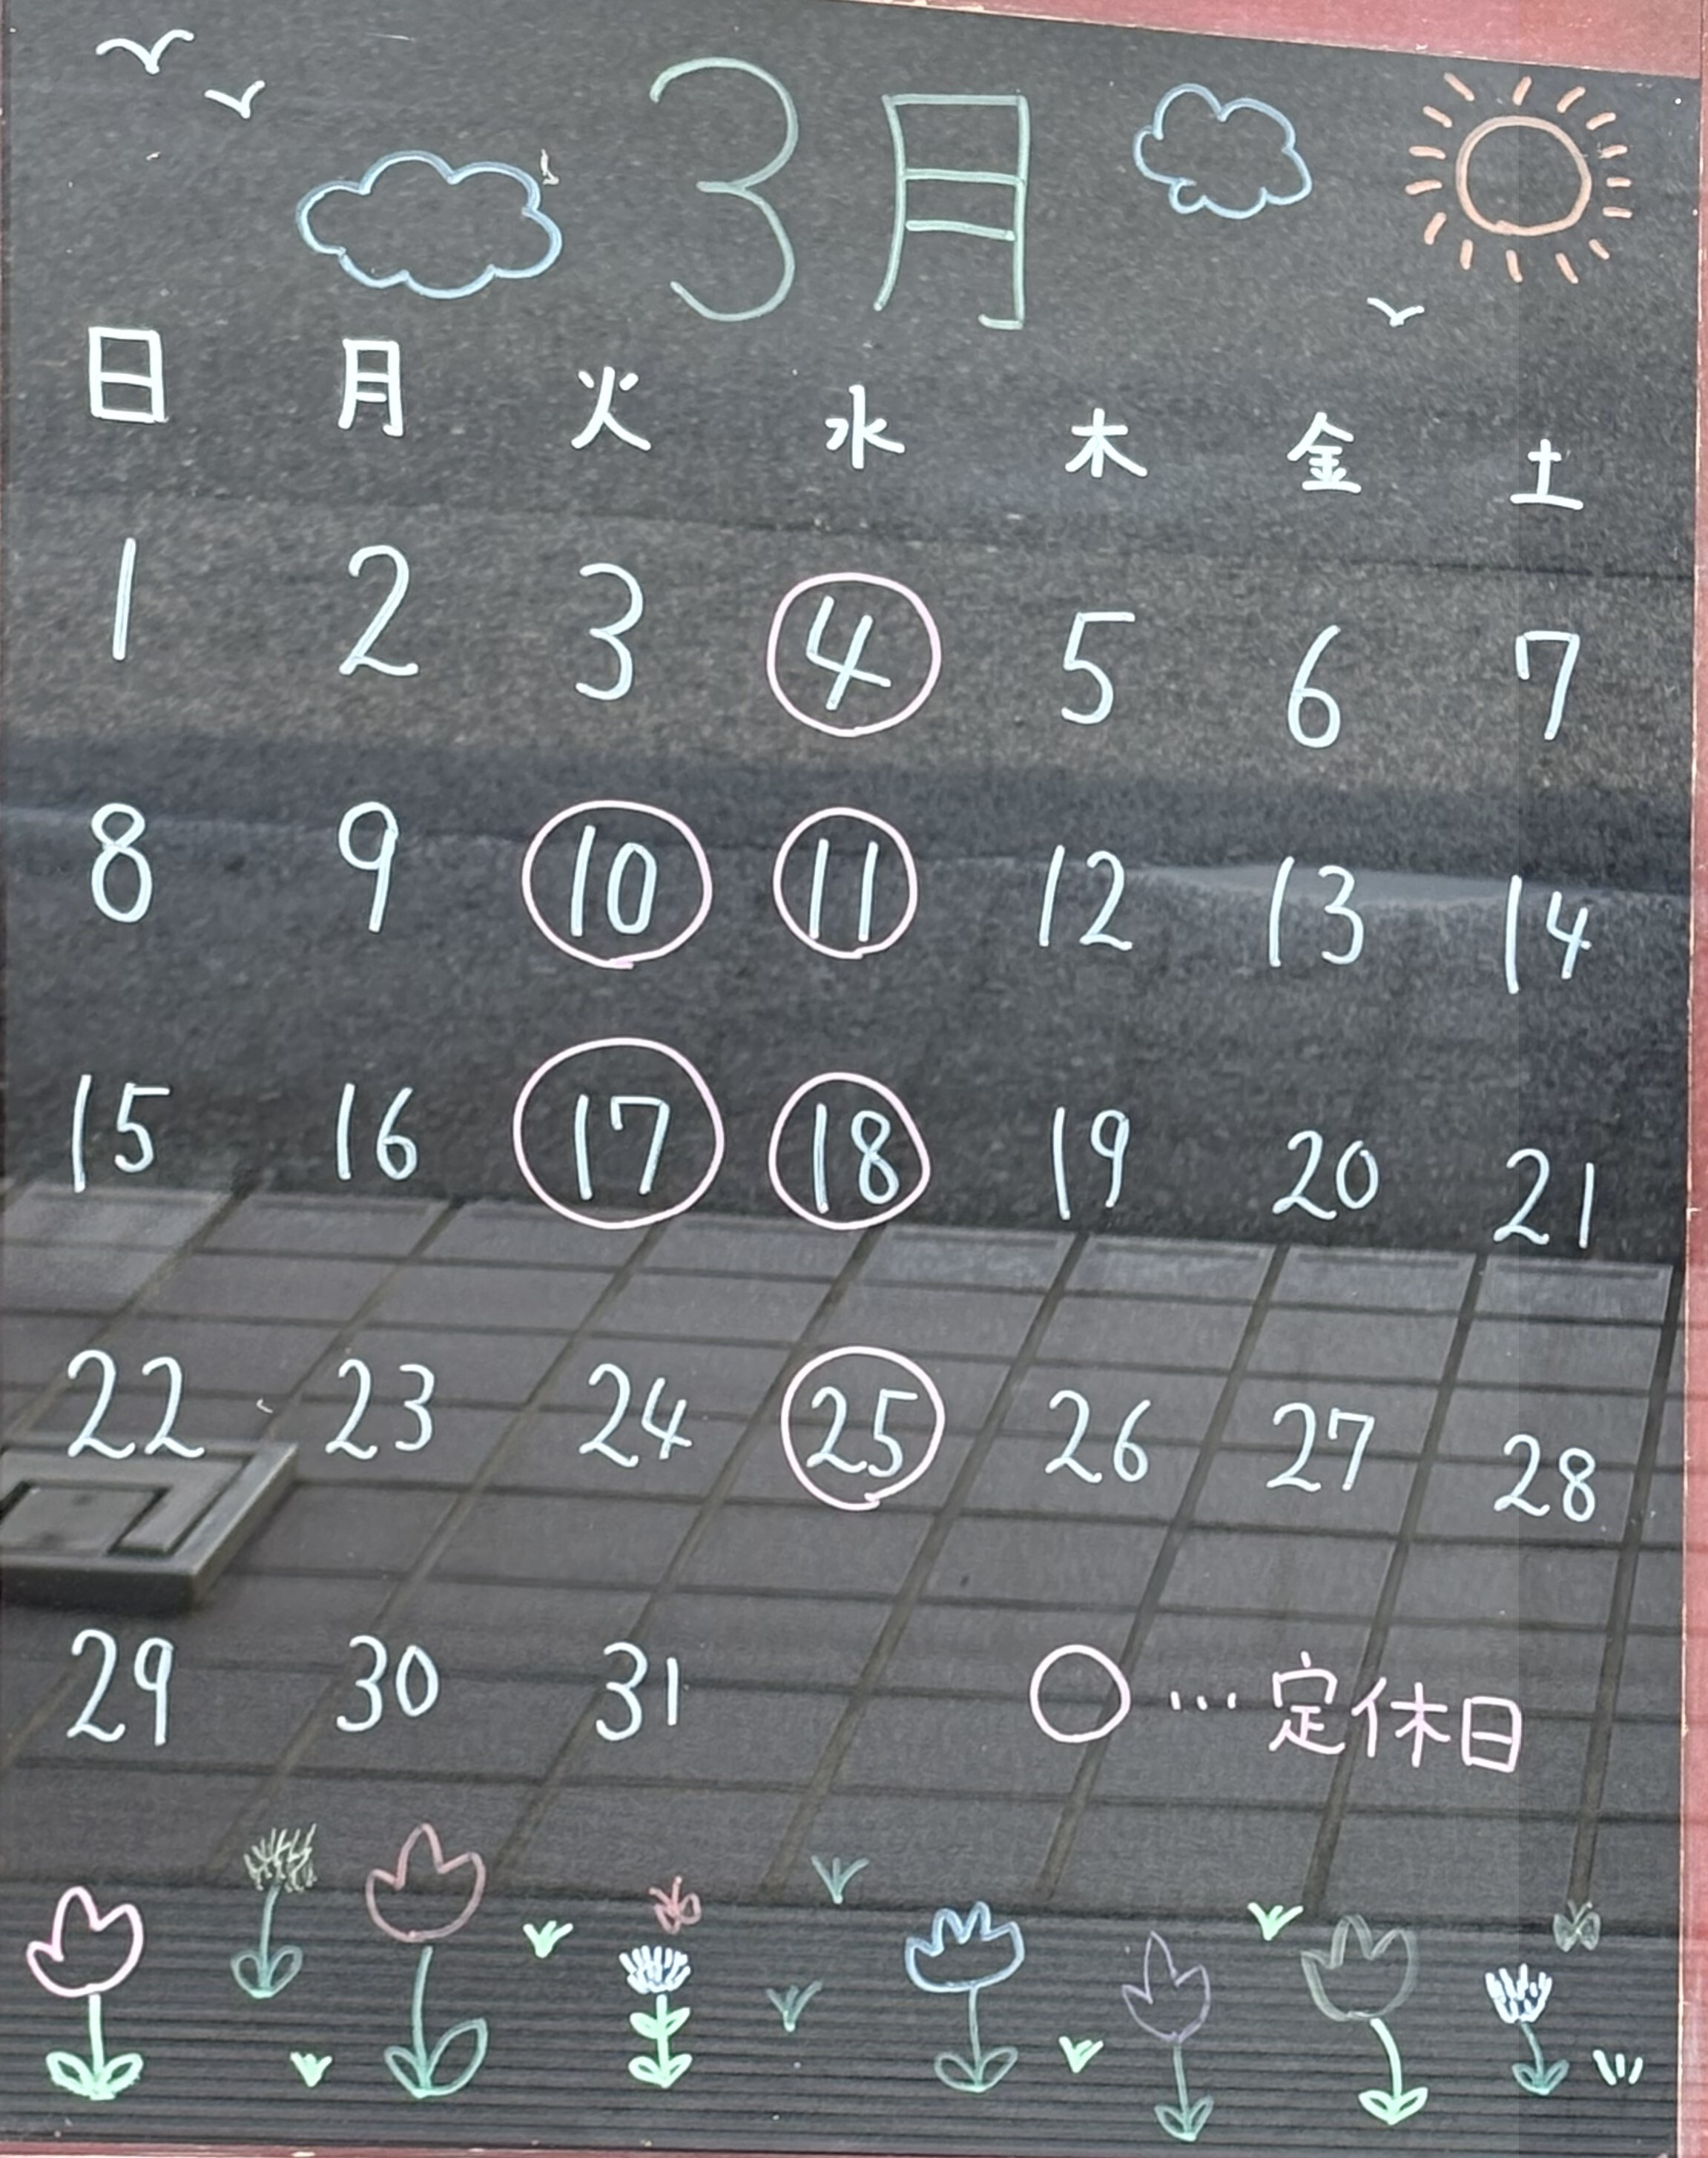 3月
日 月 火 水 木 金 土
1 2 3 4 5 6 7
8 9 10 11 12 13 14
15 16 17 18 19 20 21
22 23 24 25 26 27 28
29 30 31 ○…定休日